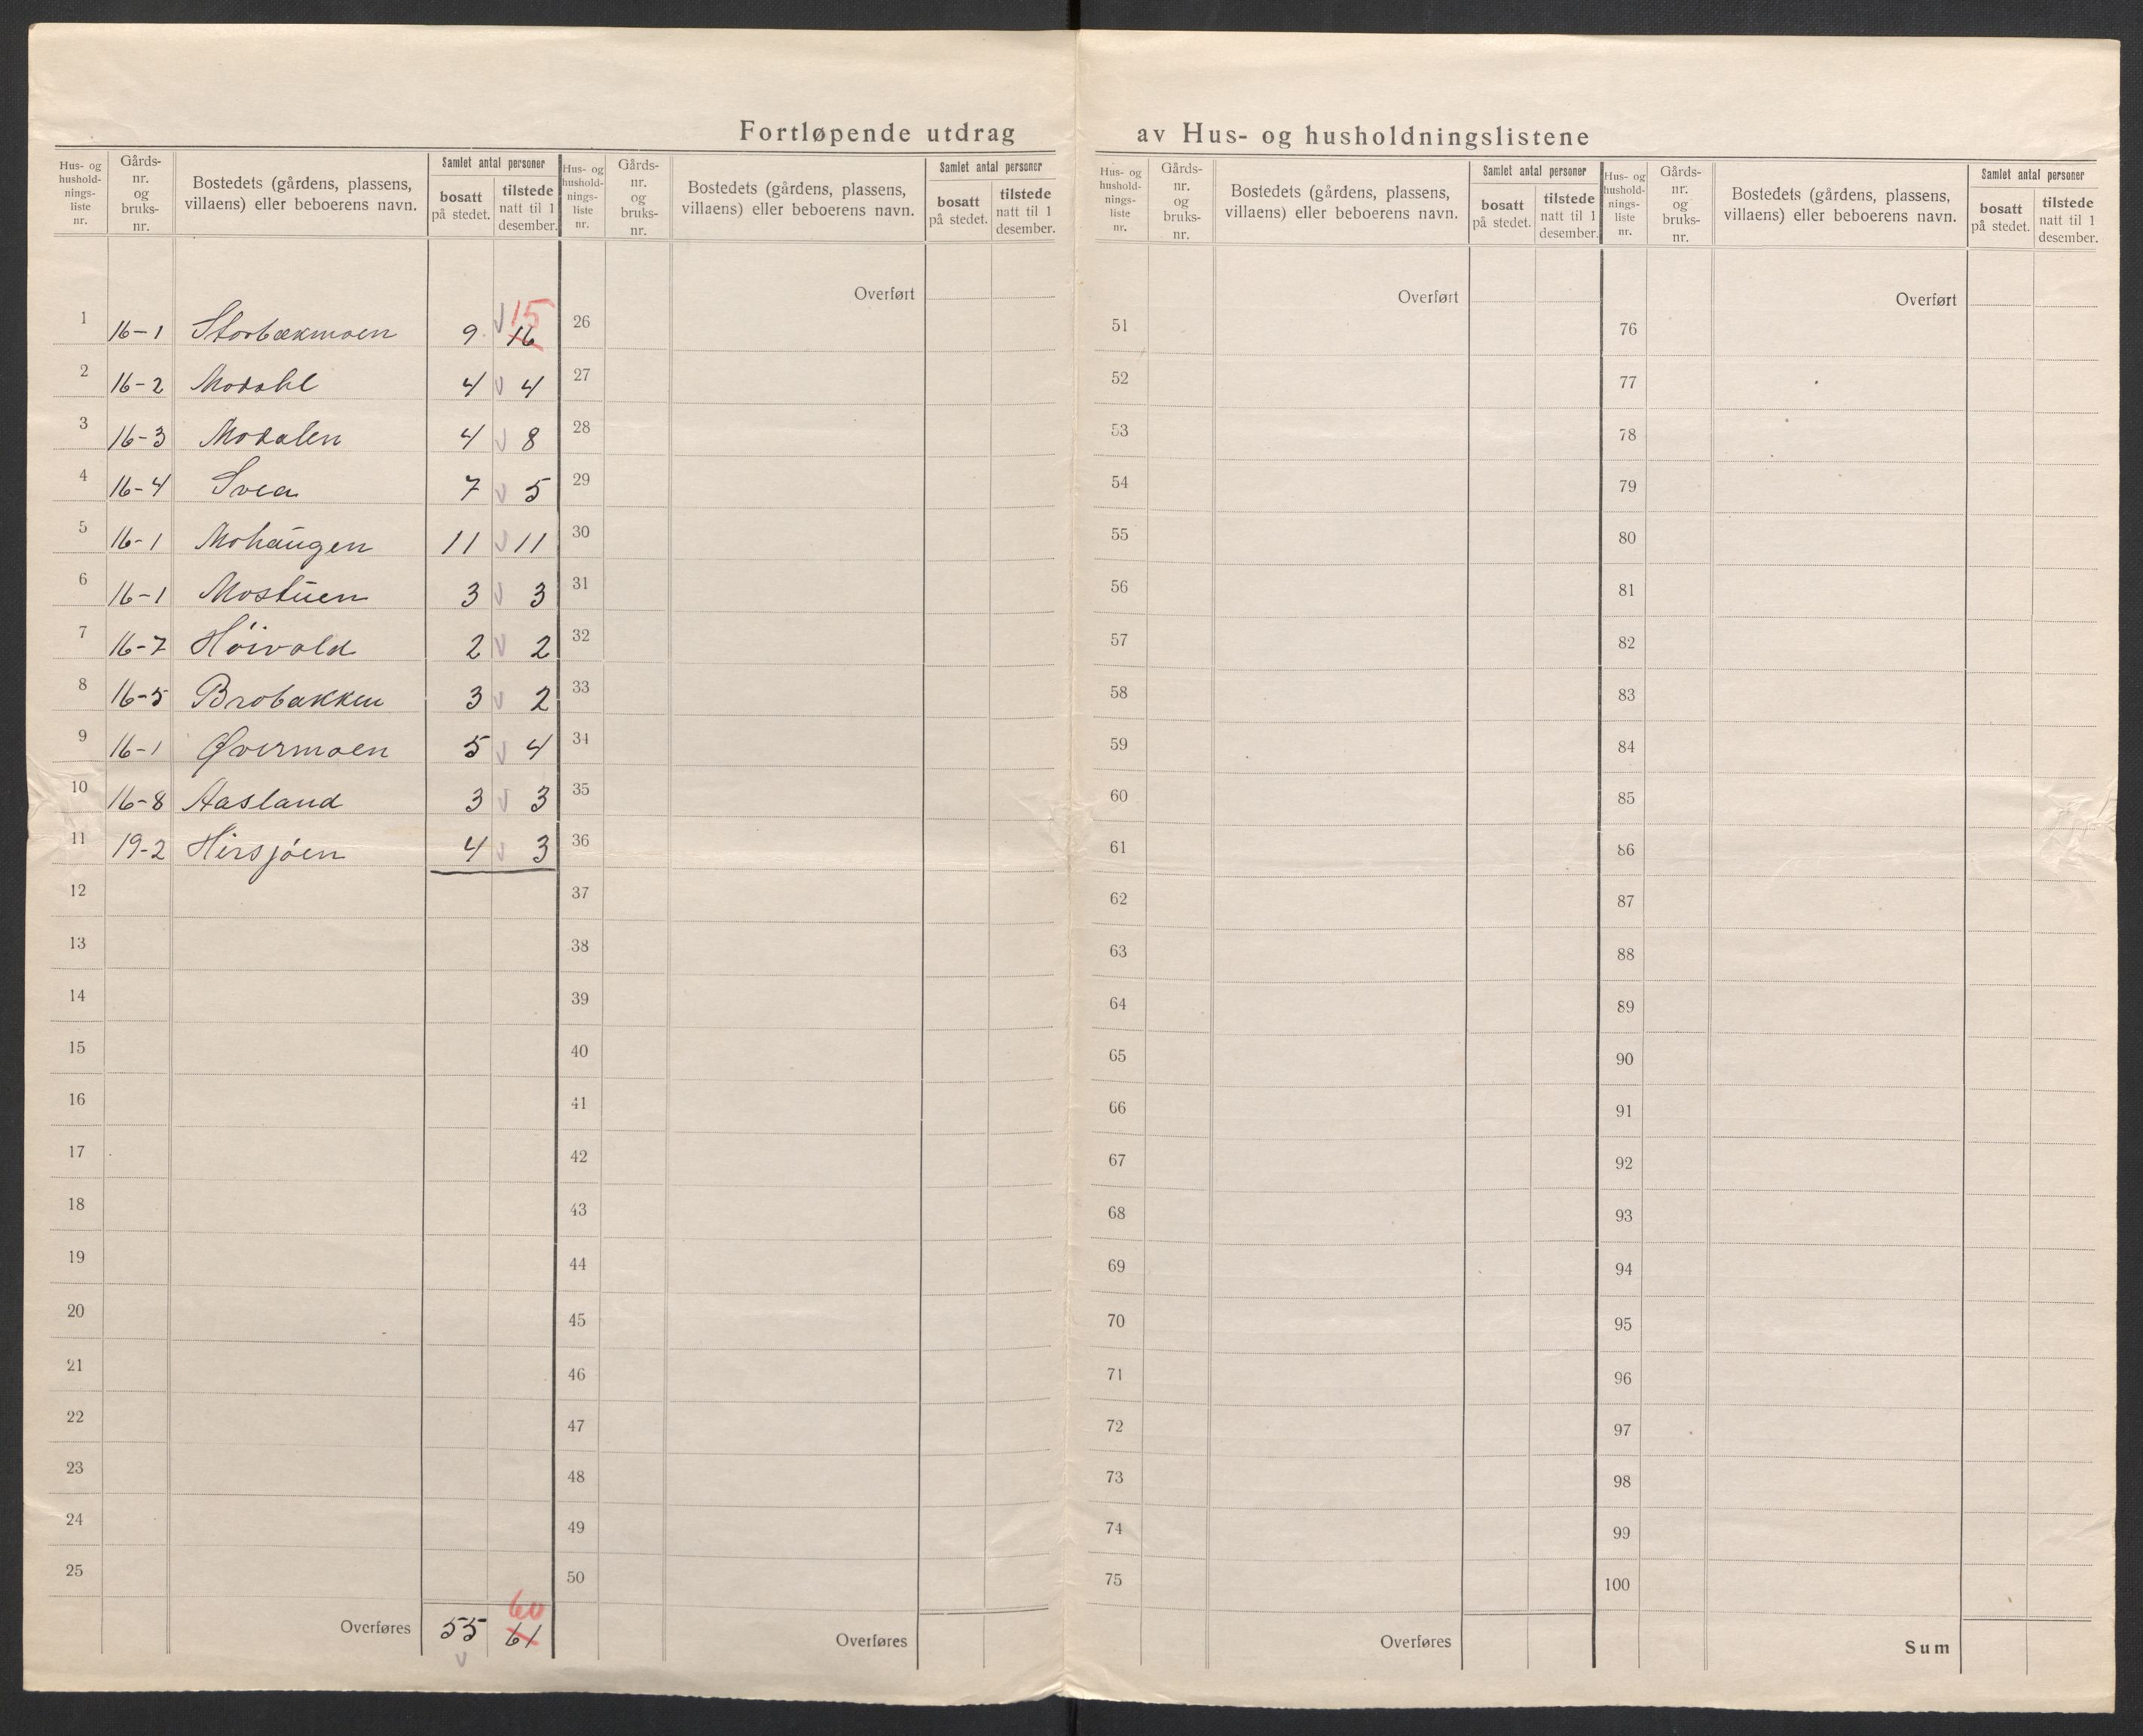 Fortløpende utdrag av Hus- og husholdningslistene
Hus- og hushold-nings-liste nr. Gårds-nr. og bruks-nr. Bostedets (gårdens, plassens, villaens) eller beboerens navn. Samlet antal personer bosatt på stedet. tilstede natt til 1 desember.
1 16-1 Storbækmoen 9 v 15 16
2 16-2 Modahl 4 v 4
3 16-3 Modalen 4 v 8
4 16-4 Svea 7 v 5
5 16-1 Mohaugen 11 v 11
6 16-1 Mostuen 3 v 3
7 16-7 Høivold 2 v 2
8 16-5 Brobakken 3 v 2
9 16-1 Øvermoen 5 v 4
10 16-8 Aasland 3 v 3
11 19-2 Hersjøen 4 v 3
12
13
14
15
16
17
18
19
20
21
22
23
24
25
Overføres 55 v 60 61
Hus- og hushold-nings-liste nr. Gårds-nr. og bruks-nr. Bostedets (gårdens, plassens, villaens) eller beboerens navn. Samlet antal personer bosatt på stedet. tilstede natt til 1 desember.
Overført
26
27
28
29
30
31
32
33
34
35
36
37
38
39
40
41
42
43
44
45
46
47
48
49
50
Overføres
Hus- og hushold-nings-liste nr. Gårds-nr. og bruks-nr. Bostedets (gårdens, plassens, villaens) eller beboerens navn. Samlet antal personer bosatt på stedet. tilstede natt til 1 desember.
Overført
51
52
53
54
55
56
57
58
59
60
61
62
63
64
65
66
67
68
69
70
71
72
73
74
75
Overføres
Hus- og hushold-nings-liste nr. Gårds-nr. og bruks-nr. Bostedets (gårdens, plassens, villaens) eller beboerens navn. Samlet antal personer bosatt på stedet. tilstede natt til 1 desember.
Overført
76
77
78
79
80
81
82
83
84
85
86
87
88
89
90
91
92
93
94
95
96
97
98
99
100
Sum